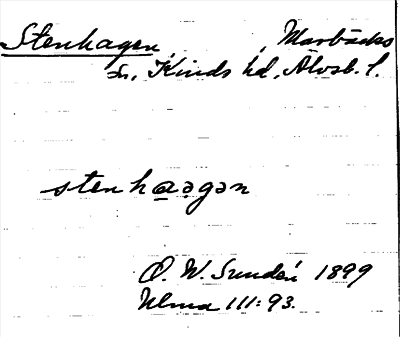 Stenhagen, Marbäcks
sn, Kinds hd, Älvsb. l.
stenhaagən
O. W. Sundén 1899
Ulma 111:93.